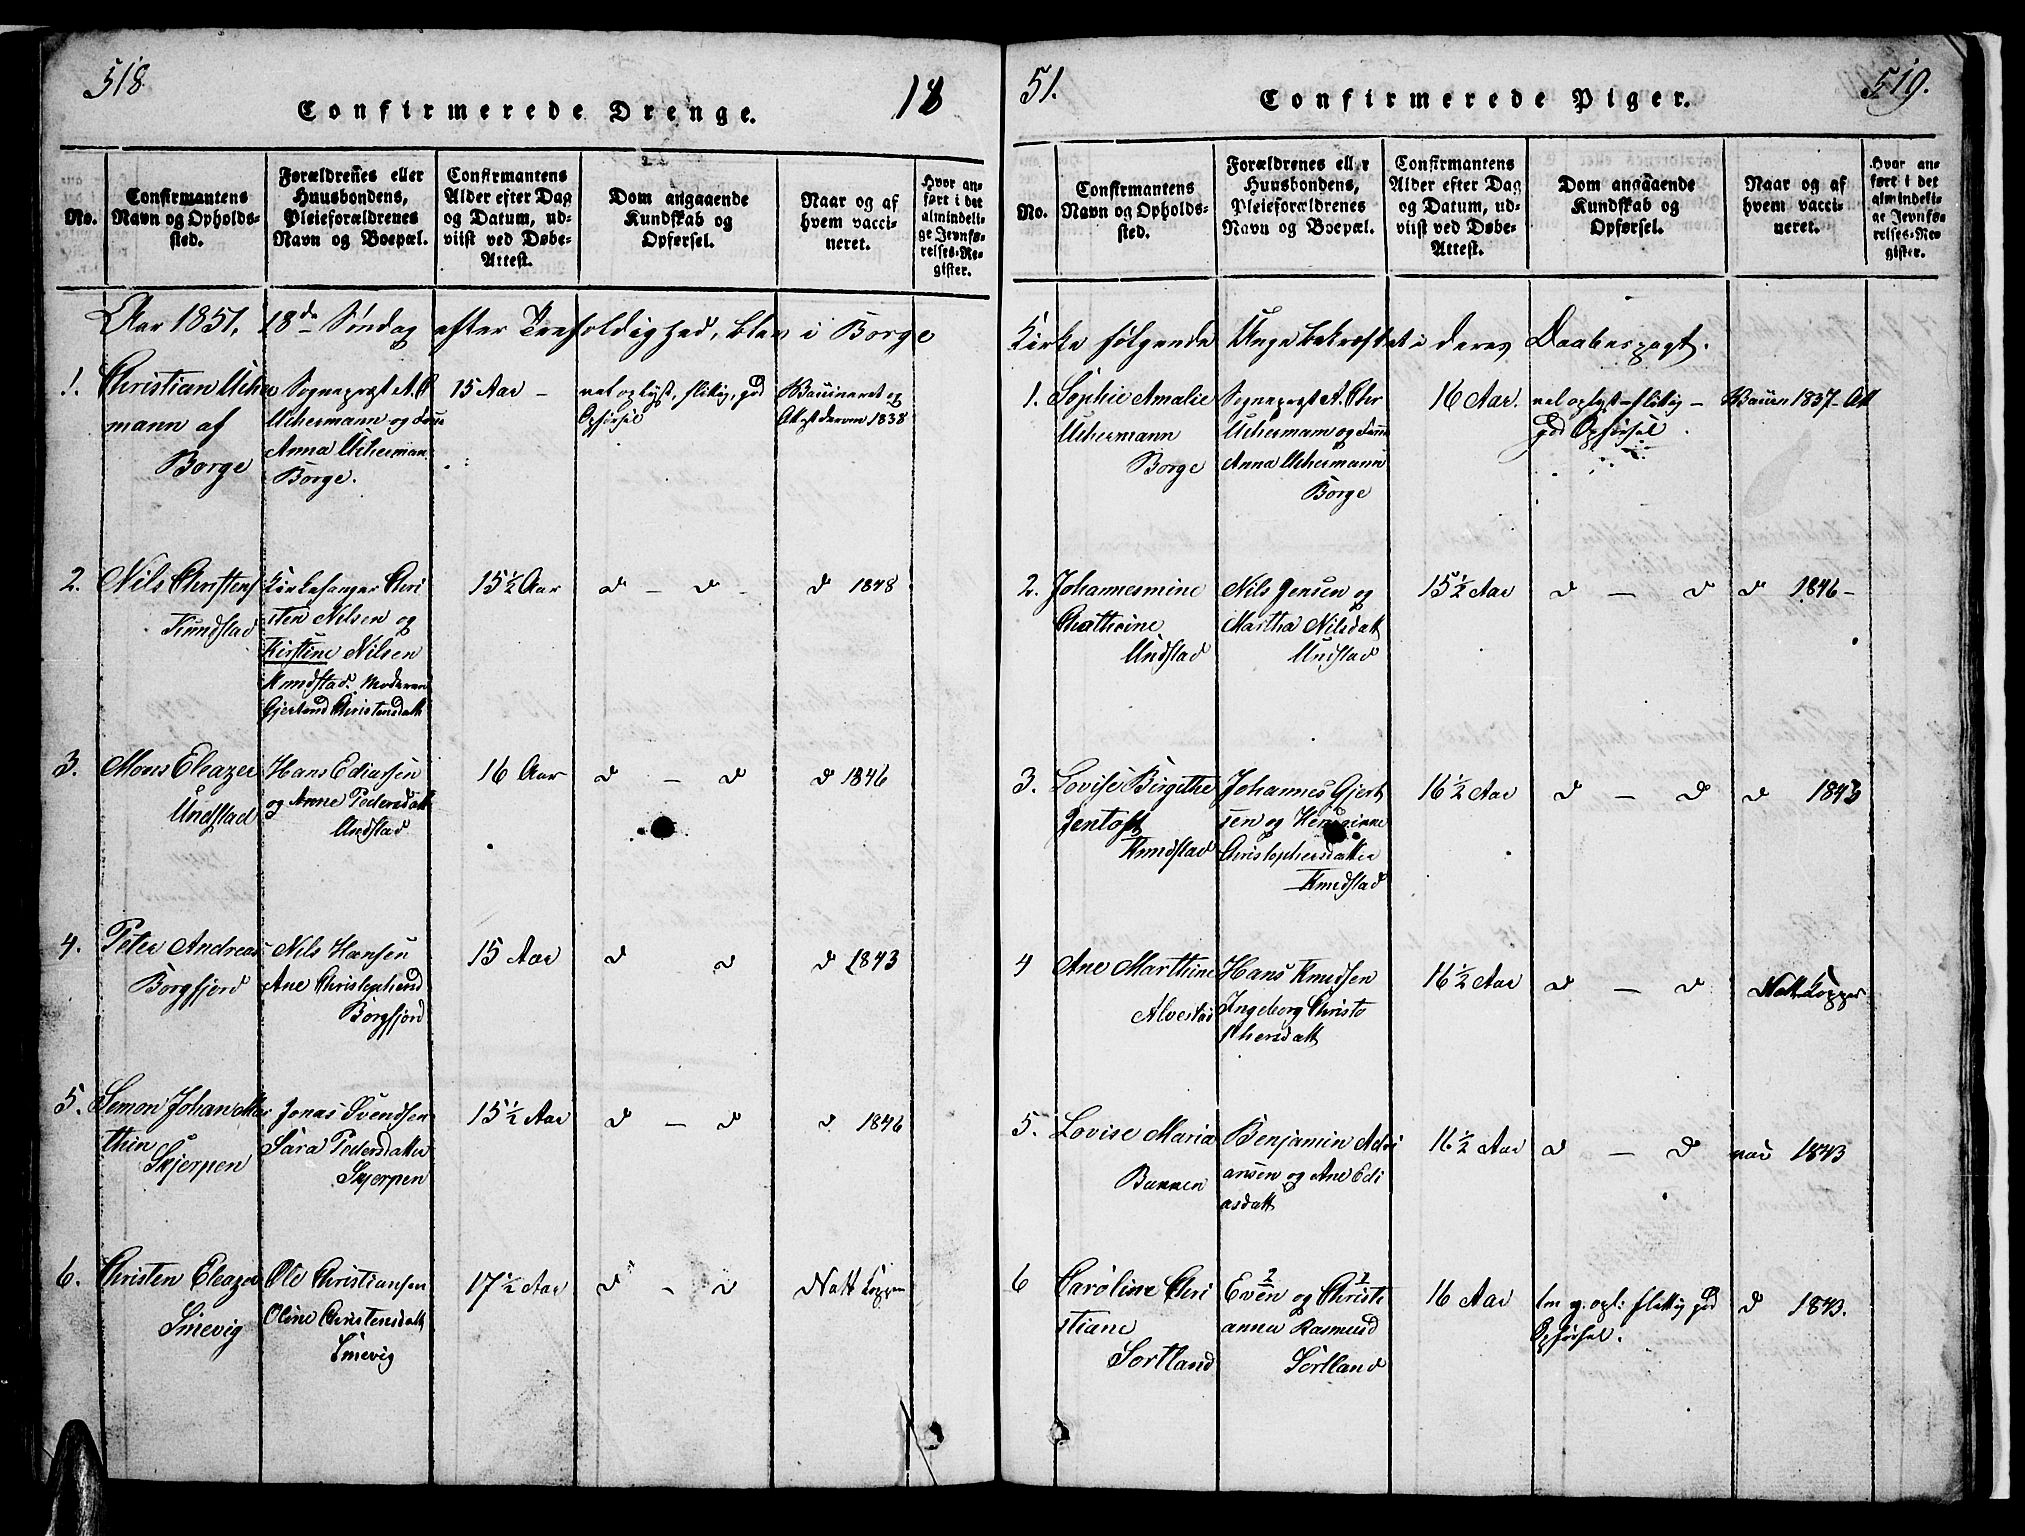 518
18
Confirmerede Drenge.
No.
Confirmantens
Navn og Opholds-
sted.
Forældrenes eller
Huusbondens,
Pleieforældrenes
Navn og Boepæl.
Confirmantens
Alder efter Dag
og Datum, ud-
viist ved Døbe-
Attest.
Dom angaaende
Kundskab og
Opførsel.
Naar og af
hvem vacci-
neret.
Hvor an-
ført i det
almindeli-
ge Jevnfø-
relses-Re-
gister.
Aar 1851, 18de Søndag efter Trefoldighed, blev i Borge
1.
Christian Ucher
mann af
Borge
Sognepræst A. C
Uchermann og
Anna Ucherman
Borge.
15 Aar -
vel oplyst, flittig, god
Opførsel
Vaccineret og
Attest derom 1838
2.
Nils Christens
Knudstad
Kirkesanger Chri
sten Nilsen og
Kirstine Nilsen
Knudstad. Moderen
Gjertrud Christensdatt
15 ½ Aar
d - d -
d 1848
3.
Mons Eleazer
Undstad
Hans Ediassen
og Anne Pedersdatt
Undstad
16 Aar
d - d
d 1846
4.
Peter Andreas
Borgfjord
Nils Hansen
Ane Christophersd
Borgfjord
15 Aar
d d
d 1843
5.
Semon Johan Mar
thin
Skjerpen
Jonas Svendsen
Sara Pedersdatter
Skjerpen
15 ½ Aar
d - d
d. 1846
6.
Christen Eleazer
Smevig
Ole Christiansen
Oline Christensdatt
Smevig
17 ½ Aar
d - d
Natt. Kopper
51.
519.
Confirmerede Piger.
No.
Confirmantens
Navn og Opholds-
sted.
Forældrenes eller
Huusbondens,
Pleieforældrenes
Navn og Boepæl.
Confirmantens
Alder efter Dag
og Datum, ud-
viist ved Døbe-
Attest.
Dom angaaende
Kundskab og
Opførsel.
Naar og af
hvem vacci-
neret.
Hvor an-
ført i det
almindeli-
ge Jevnfø-
relses-Re-
gister.
Kirke følgende Unge bekræftet i deres Daabespagt.
1.
Sophie Amalie
Uchermann
Borge
Sognepræst A. Chr
Uchermann og
Anna Uchermann
Borge
16 Aar.
vel oplyst - flittig -
god Opførsel
Vaccin 1837 - Att
2.
Johannesmine
Chathrine
Undstad
Nils Jensen og
Martha Nilsdatt
Undstad
15 ½ Aar
d - d
d 1846 -
3.
Lovise Birgithe
Jentoft
Knudstad
Johannes Gjert
sen og
Christophersdatter
Knudstad
16 ½ Aar
d - d
d 1843
4
Ane Marthine
Alvestad
Hans Knudsen
Ingeborg Christo
phersdatt
16 ½ Aar
d - d
Natt. Kopper
5.
Lovise Maria
Bunnen
Benjamin Adri
ansen og Ane Edi
asdatt
16 ½ Aar
d - d
vac 1843
6
Caroline Chri
stiane
Sortland
Even og Christi
anna Rasmusd
Sortland
16 Aar
tm g. opl: flittig god
Opførsel.
d 1843.